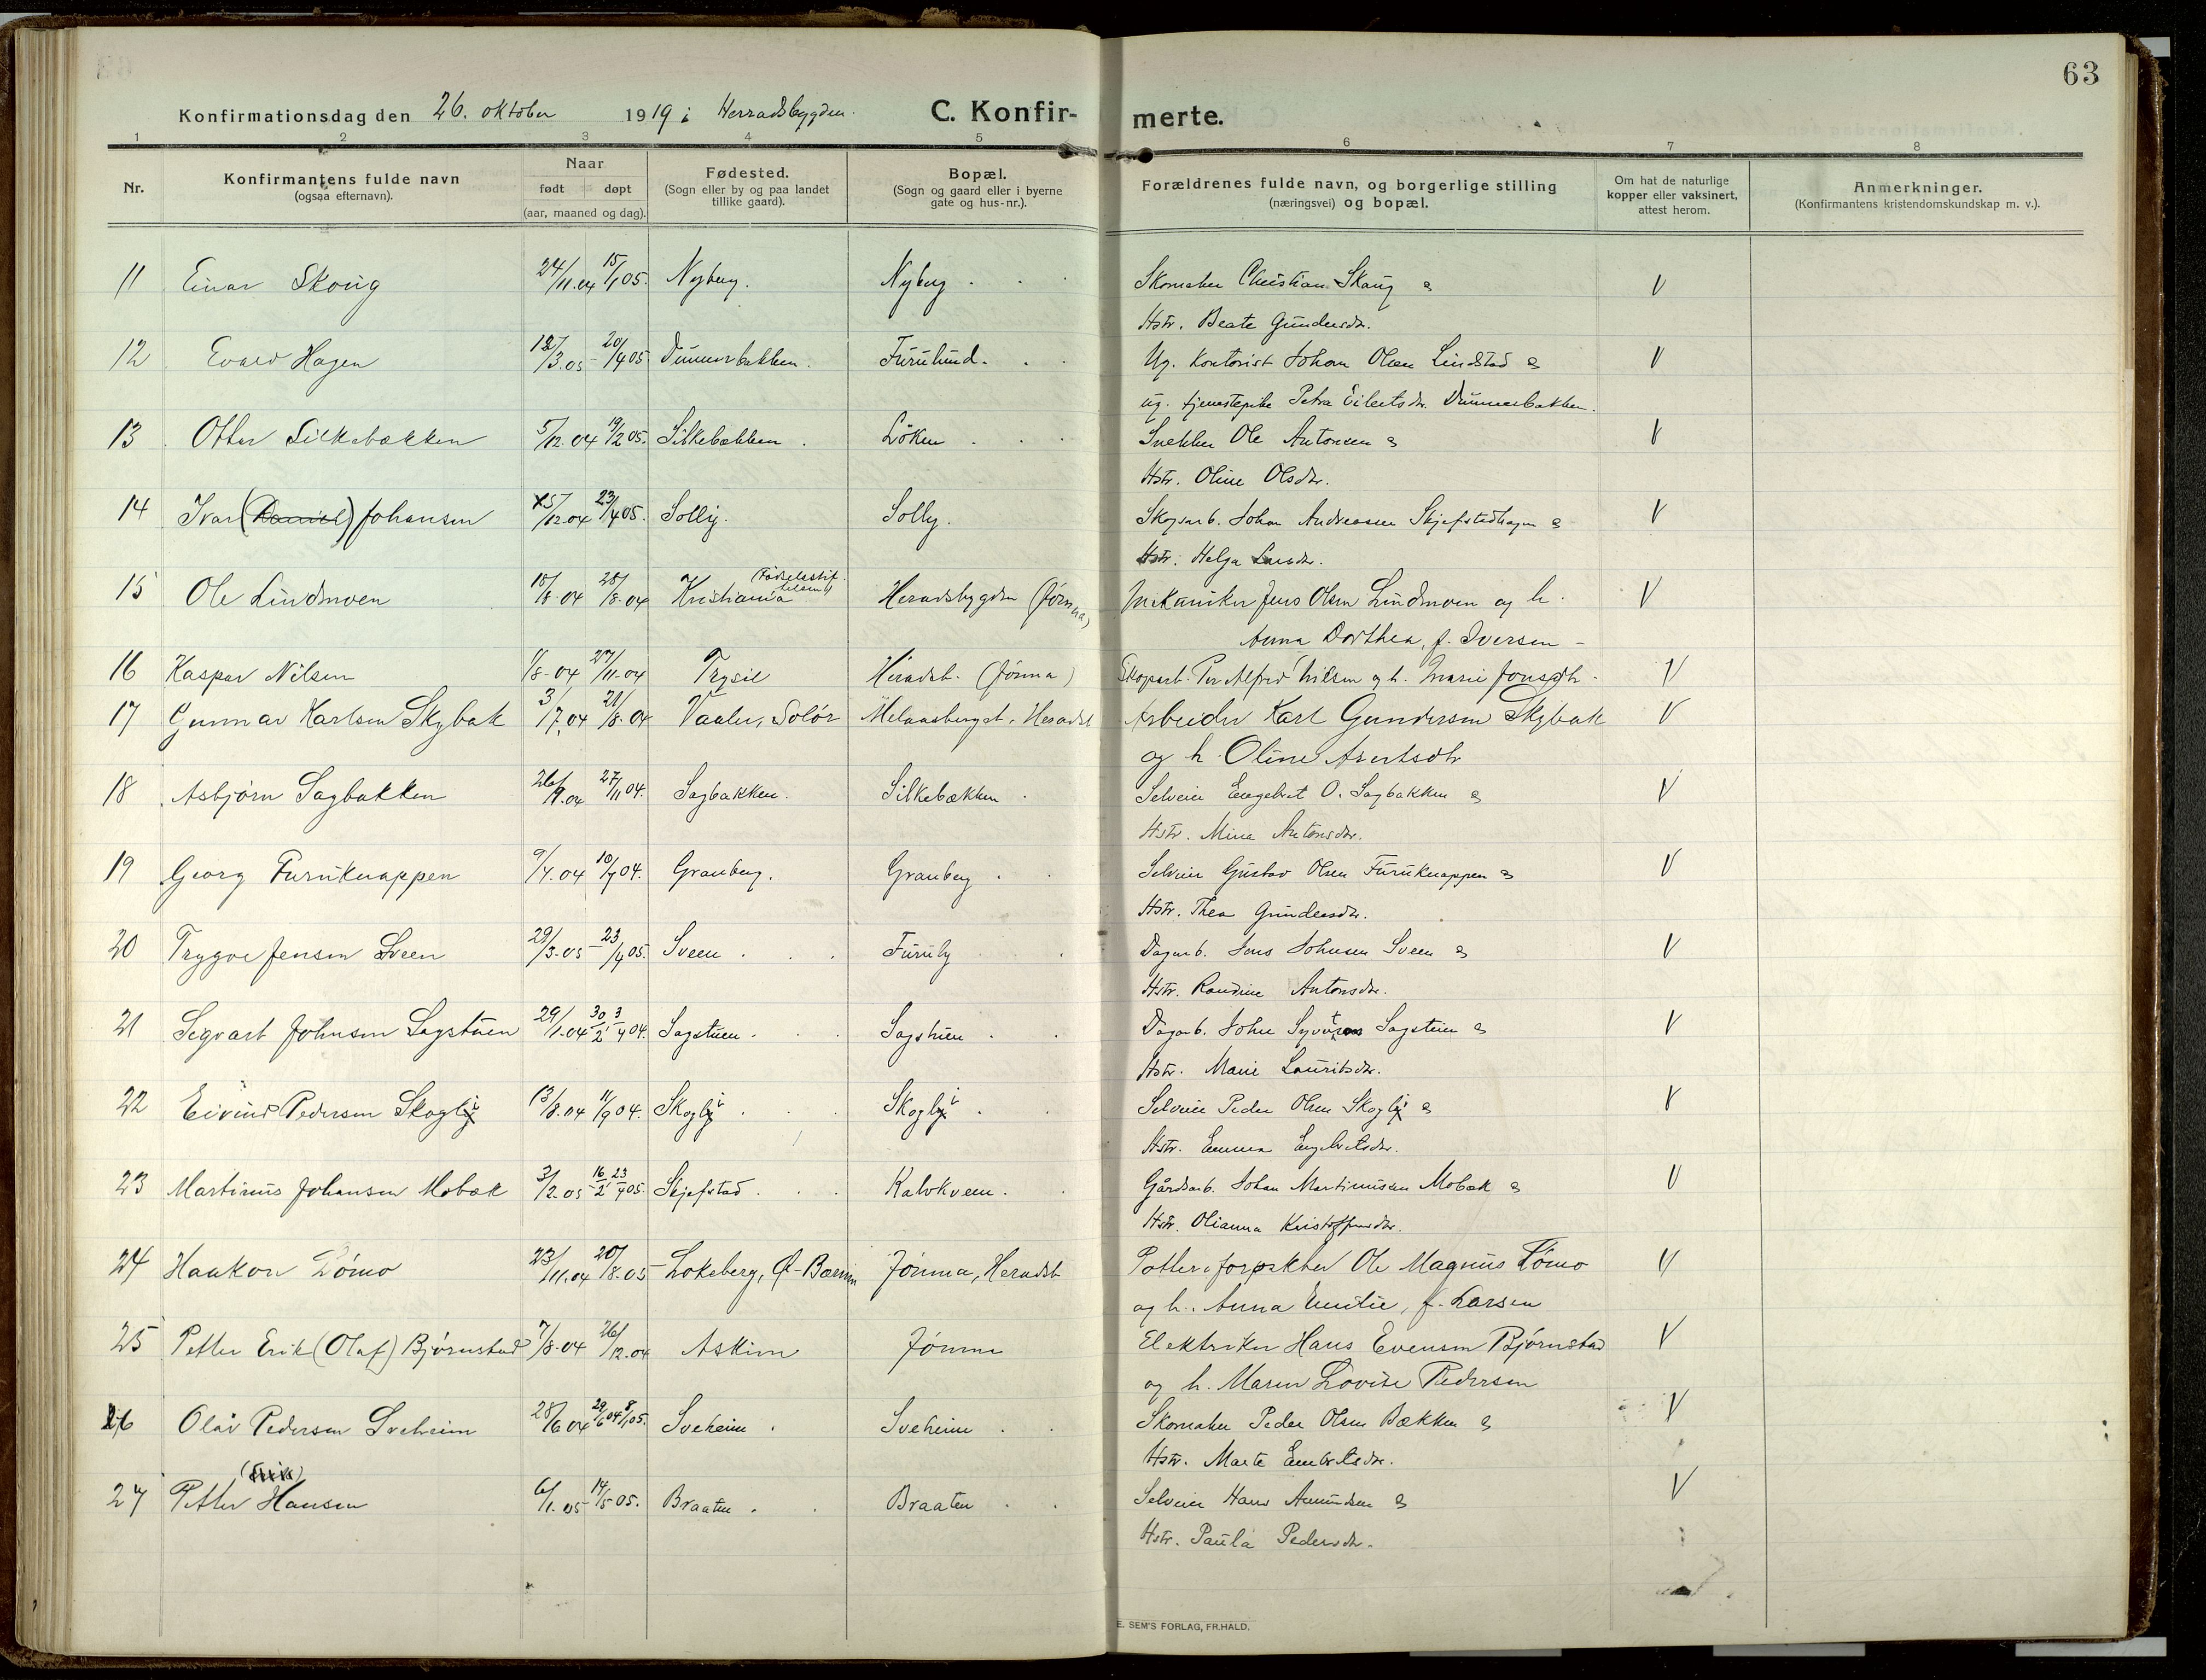 63
Konfirmationsdag den 26. oktober 1919 i Herradsbygden. C. Konfir- merte.
1 2 3 4 5 6 7 8
Nr. Konfirmantens fulde navn (ogsaa efternavn). Naar født døpt (aar, maaned og dag). Fødested. (Sogn eller by og paa landet tillike gaard). Bopæl. (Sogn og gaard eller i byerne gate og hus-nr.). Forældrenes fulde navn, og borgerlige stilling (næringsvei) og bopæl. Om hat de naturlige kopper eller vaksinert, attest herom. Anmerkninger. (Konfirmantens kristendomskundskap m. v.).
11 Einar Skoug 24/11.04 15/1 05. Nyberg. Nyberg. Skomaker Christian Skaug & V
Hstr. Beate Gundersdr.
12 Evald Hagen 12/3.05 20/4 05 Dummerbakken. Furulund. Ug. kontorist Johan Olsen Lindstad & V
ug. tjenestepike Petra Eilertsdr. Dummerbakken.
13 Otter Silkebækken 5/12.04 19/2 05. Silkebækken. Løken Snekker Ole Antonsen & V
Hstr. Oline Olsdr.
14 Ivar (Daniel) Johansen 25/12.04 23/4 05. Solly. Solly. Skogsarb. Johan Andreassen Skjefstadhagen & V
Hstr. Helga Larsdr.
15 Ole Lindmoen 18/8-04 28/8-04 Kristiania (Fødselsstiftelsen) Heradsbygden (Jømna) Mekaniker Jens Olsen Lindmoen og h. V
Anna Dorthea, f. Iversen -
16 Kaspar Nilsen 1/8-04 27/11-04 Trysil Heradsb. (Jømna) Skogsarb. Per Alfred Nilsen og h. Marie Jonsdtr. V
17 Gunnar Karlsen Skybak 3/7.04 21/8-04 Vaaler, Solør Melaasberget, Heradsb Arbeider Karl Gundersen Skybak V
og h. Oline Avertsdtr
18 Asbjørn Sagbakken 26/9.04 27/11 04. Sagbakken. Silkebækken Selveier Engebret O. Sagbakken & V
Hstr. Mina Antonsdr.
19 Georg Furuknappen 9/4.04 10/7 04. Granberg. Granberg Selveier Gustav Olsen Furuknappen & V
Hstr. Thea Gundersdr.
20 Trygve Jensen Sveen 29/3-05 23/4 05. Sveen Furuly Dagarb. Jens Johnsen Sveen & V
Hstr. Randine Antonsdr.
21 Segvart Johnsen Sagstuen 29/1.04 30/2 3/4 04. Sagstuen Sagstuen Dagarb. John Syver Sagstuen & V
Hstr. Marie Lauritsdr.
22 Eivind Pedersen Skogli 13/8.04 11/9 04. Skogli Skogli Selveier Peder Olsen Skogli & V
Hstr. Emma Engebretsdr.
23 Martinus Johansen Mobæk 3/2.05 16/2 23/4 05. Skjefstad Kalvkveen. Gårdsarb. Johan Martinusen Mobæk & V
Hstr. Olianna Kristoffersdr.
24 Haakon Lømo 23/11.04 20/8.05 Lokeberg, Ø-Bærum Jømna, Heradsb Potteriforpakter Ole Magnus Lømo V
og h. Anna Emilie, f. Larsen
25 Petter Erik (Olaf) Bjørnstad 7/8-04 26/12.04 Askim Jømna Elektriker Hans Evensen Bjørnstad V
og h. Maren Lovise Pedersen
26 Olav Pedersen Sveheim 28/6 04 29/6 04 8/1 05. Sveheim Sveheim Skomaker Peder Olsen Bækken & V
Hstr. Marte Embretsdr.
(Erik)
27 Petter Hansen 6/1.05 14/5 05. Braaten Braaten Selveier Hans Amundsen & V
Hstr. Paula Pedersdr.
E. SEM'S FORLAG, FR.HALD.